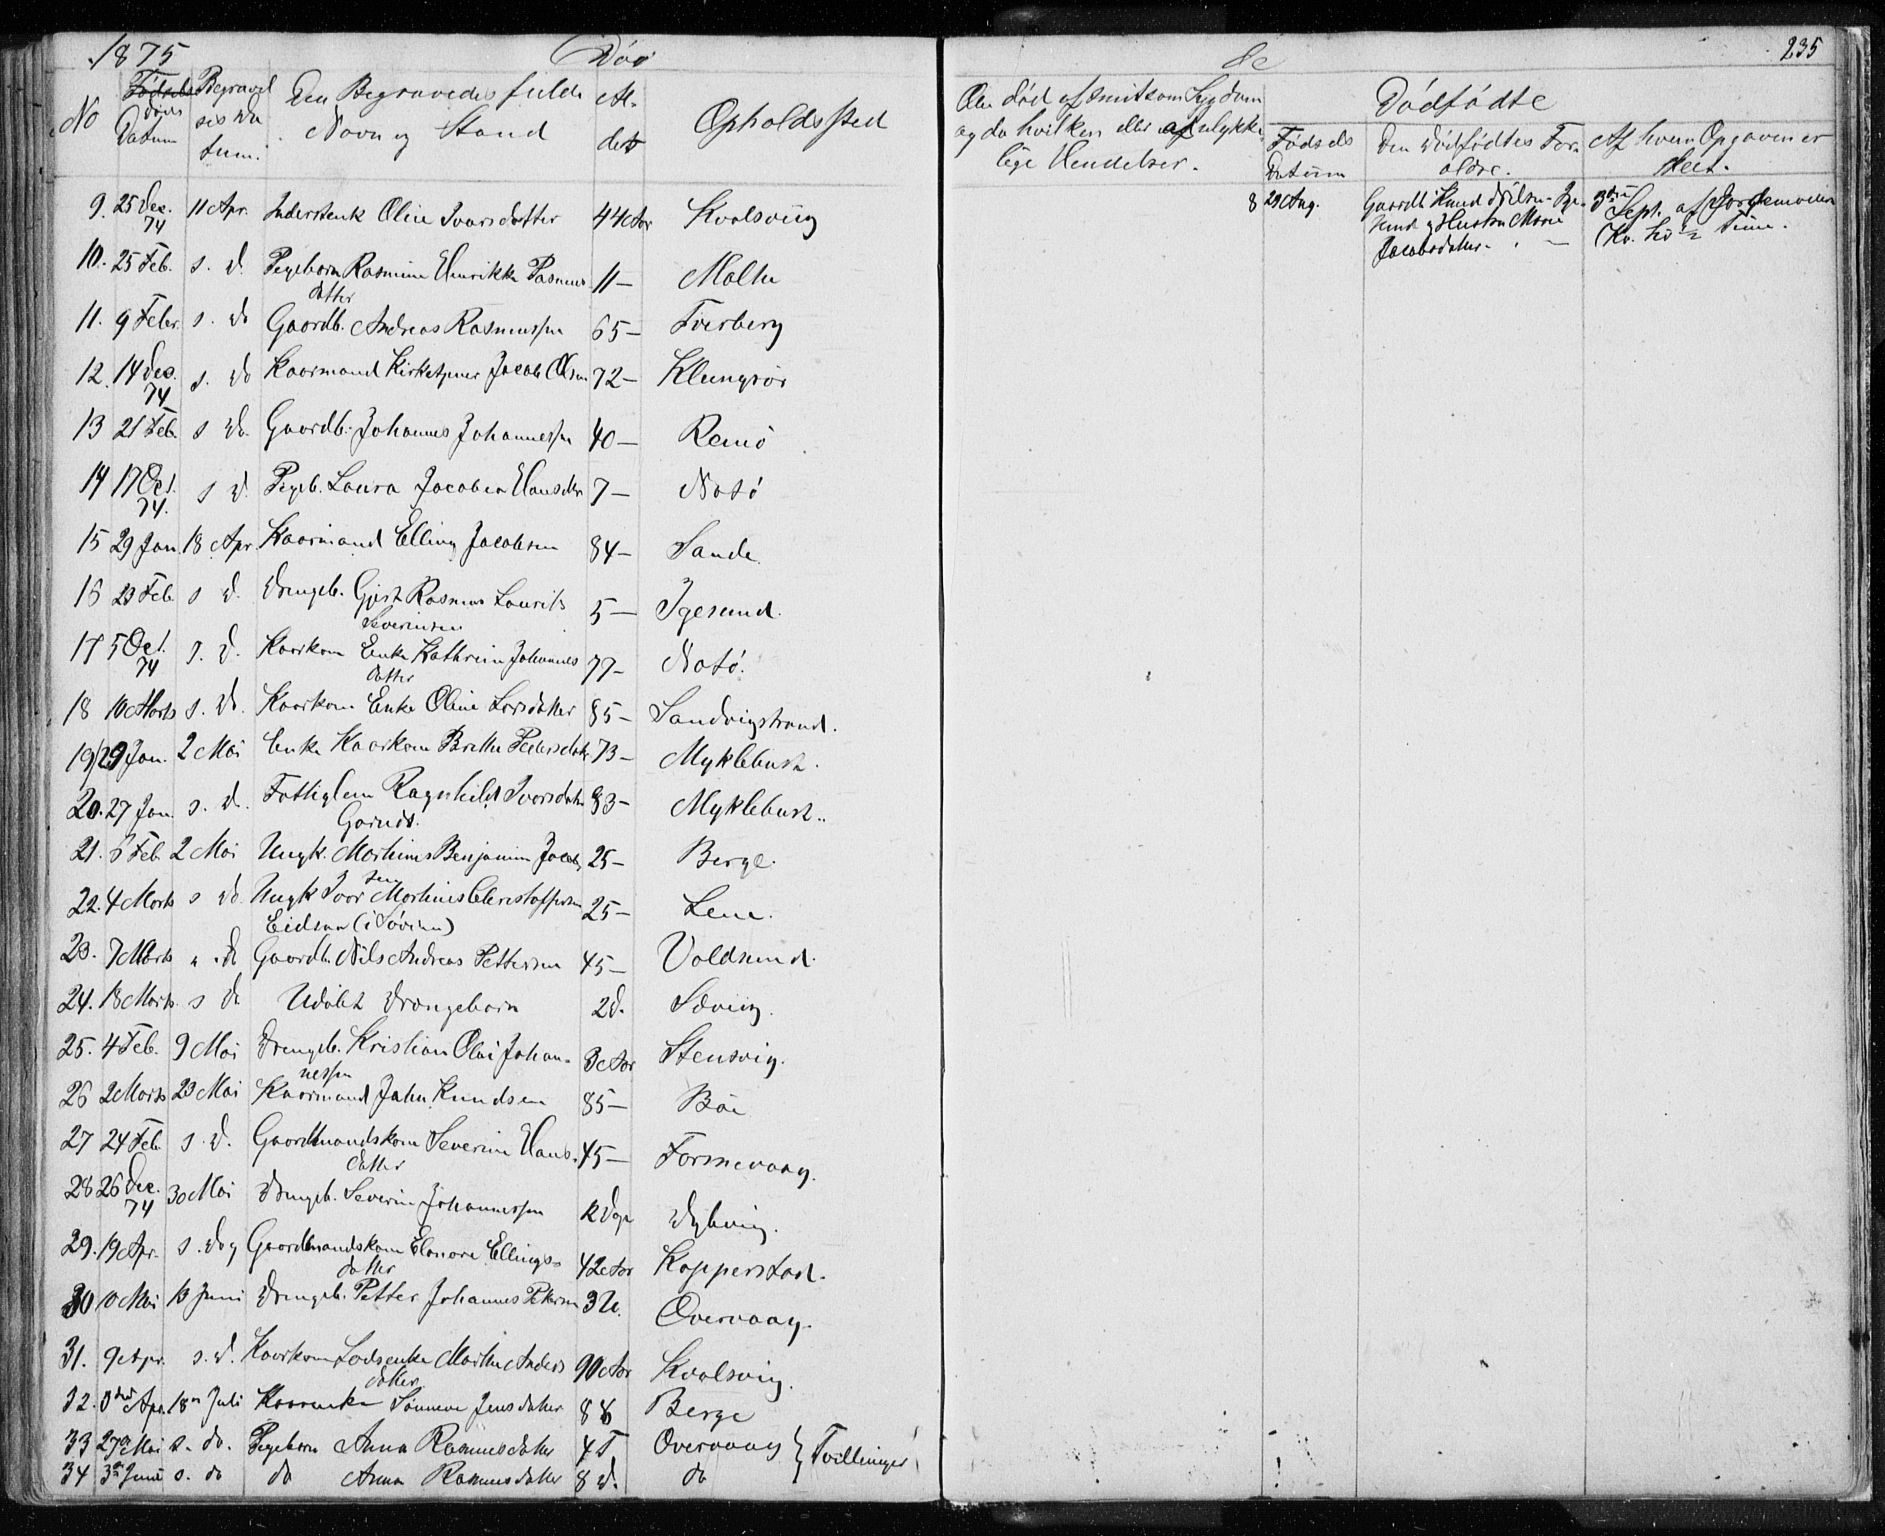 1875 Døø de 235
No Fødsels Døds Datum Begravelses Datum. Den Begravedes fulde Navn og Stand Alder Opholdssted
Om død af smitsom Sygdom og da hvilken eller af ulykkelige Hendelser.
Dødfødte
Fødsels Datum Den Dødfødtes Forældre. Af hvem Opgaven er skeet.
9. 25 Dec. 74 11 Apr. Inderstenk Oline Ivarsdatter 44 Aar Kvalsviig
8 29 Aug. Gaardb. Knud Nilsen Igesund og Hustru Marie Jacobsdatter. 3die Sept. af Jordemoder
10. 25 Feb. s. D. Pigebarn Rasmine Henrikke Rasmusdatter 11 — Moltu
11. 9 Febr. s. D Gaardb. Andreas Rasmussen 65 — Tverberg
12. 14 Dec. 74 s. D Kaarmand Kirketjener Jacob Olsen 72 — Klungsør
13 21 Feb. s D. Gaardb. Johannes Johannessen 40 — Remø
14 17 Oct. 74. s D. Pigeb. Laura Jacobea Hansdtr 7 — Notø
15 29 Jan. 18 Apr. Kaarmand Elling Jacobsen 84 — Sande
16 23 Feb. s D. Drengeb. Gjert Rasmus Laurits Severinsen 5 — Igesund.
17 5 Oct. 74 s. D. Kaarkone Enke Kathrine Johannesdatter 77 — Notø.
18 10 Marts s. D. Kaarkone Enke Oline Larsdatter 85 — Sandvigstrand.
19 29 Jan. 2 Mai Enke Kaarkone Brithe Pedersdatr 73 — Myklebust.
20. 27 Jan. s. D. Fattiglem Ragnhild Ivarsdatter 83 — Myklebust..
21. 6 Feb. 2 Mai Ungk. Martinus Benjamin Jacobsen 25 — Berge.
22. 4 Marts s D. Ungk Ivar Martinus Christoffersen Eidsaa (i Søvden) 25 — Lene.
23. 7 Marts s. D Gaardb. Nils Andreas Pettersen 45 — Voldsund.
24. 18 Marts. s D Udøbt Drengebarn 2 D. Sæviig.
25. 4 Feb. 9 Mai Drengeb. Kristian Olai Johannessen 3 Aar Stensvig.
26 2 Marts 23 Mai Kaarmand John Knudsen 85 — Bøe
27 24 Feb. s. D. Gaardmandskone Severine Hansdatter 45 — Tormevaag.
28 26 Dec. 74 30 Mai Drengeb. Severin Johannessen 12 Dage Dybvig.
29. 19 Apr. s. Dag Gaardmandskone Elenore Ellingsdatter 42 Aar Kopperstad.
30 10 Mai 13 Juni Drengeb. Petter Johannes Petersen 3 U. Overvaag.
31. 9 Apr. s. D. Kaarkone Lodsenke Marthe Andersdatter 90 Aar Kvalsvig.
32. 3die Apr. 18de Juli Kaarenke Sønneve Jensdatter 88 Berge
33 27de Mai s. do. Pigebarn Anna Rasmusdatter 4 T Overvaag } Tvillinger
34 3die Juni s. do do Anna Rasmusdatter 8 D. do